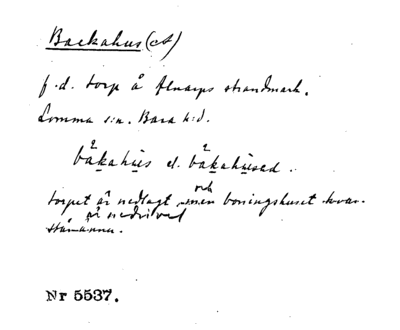 Backahus (et)
f.d. torp å Alnarps strandmark.
Lomma s:n. Bara h:d.
bákahùs el. bákahùsed.
torpet är nedlagt och boningshuset
är nedrivet